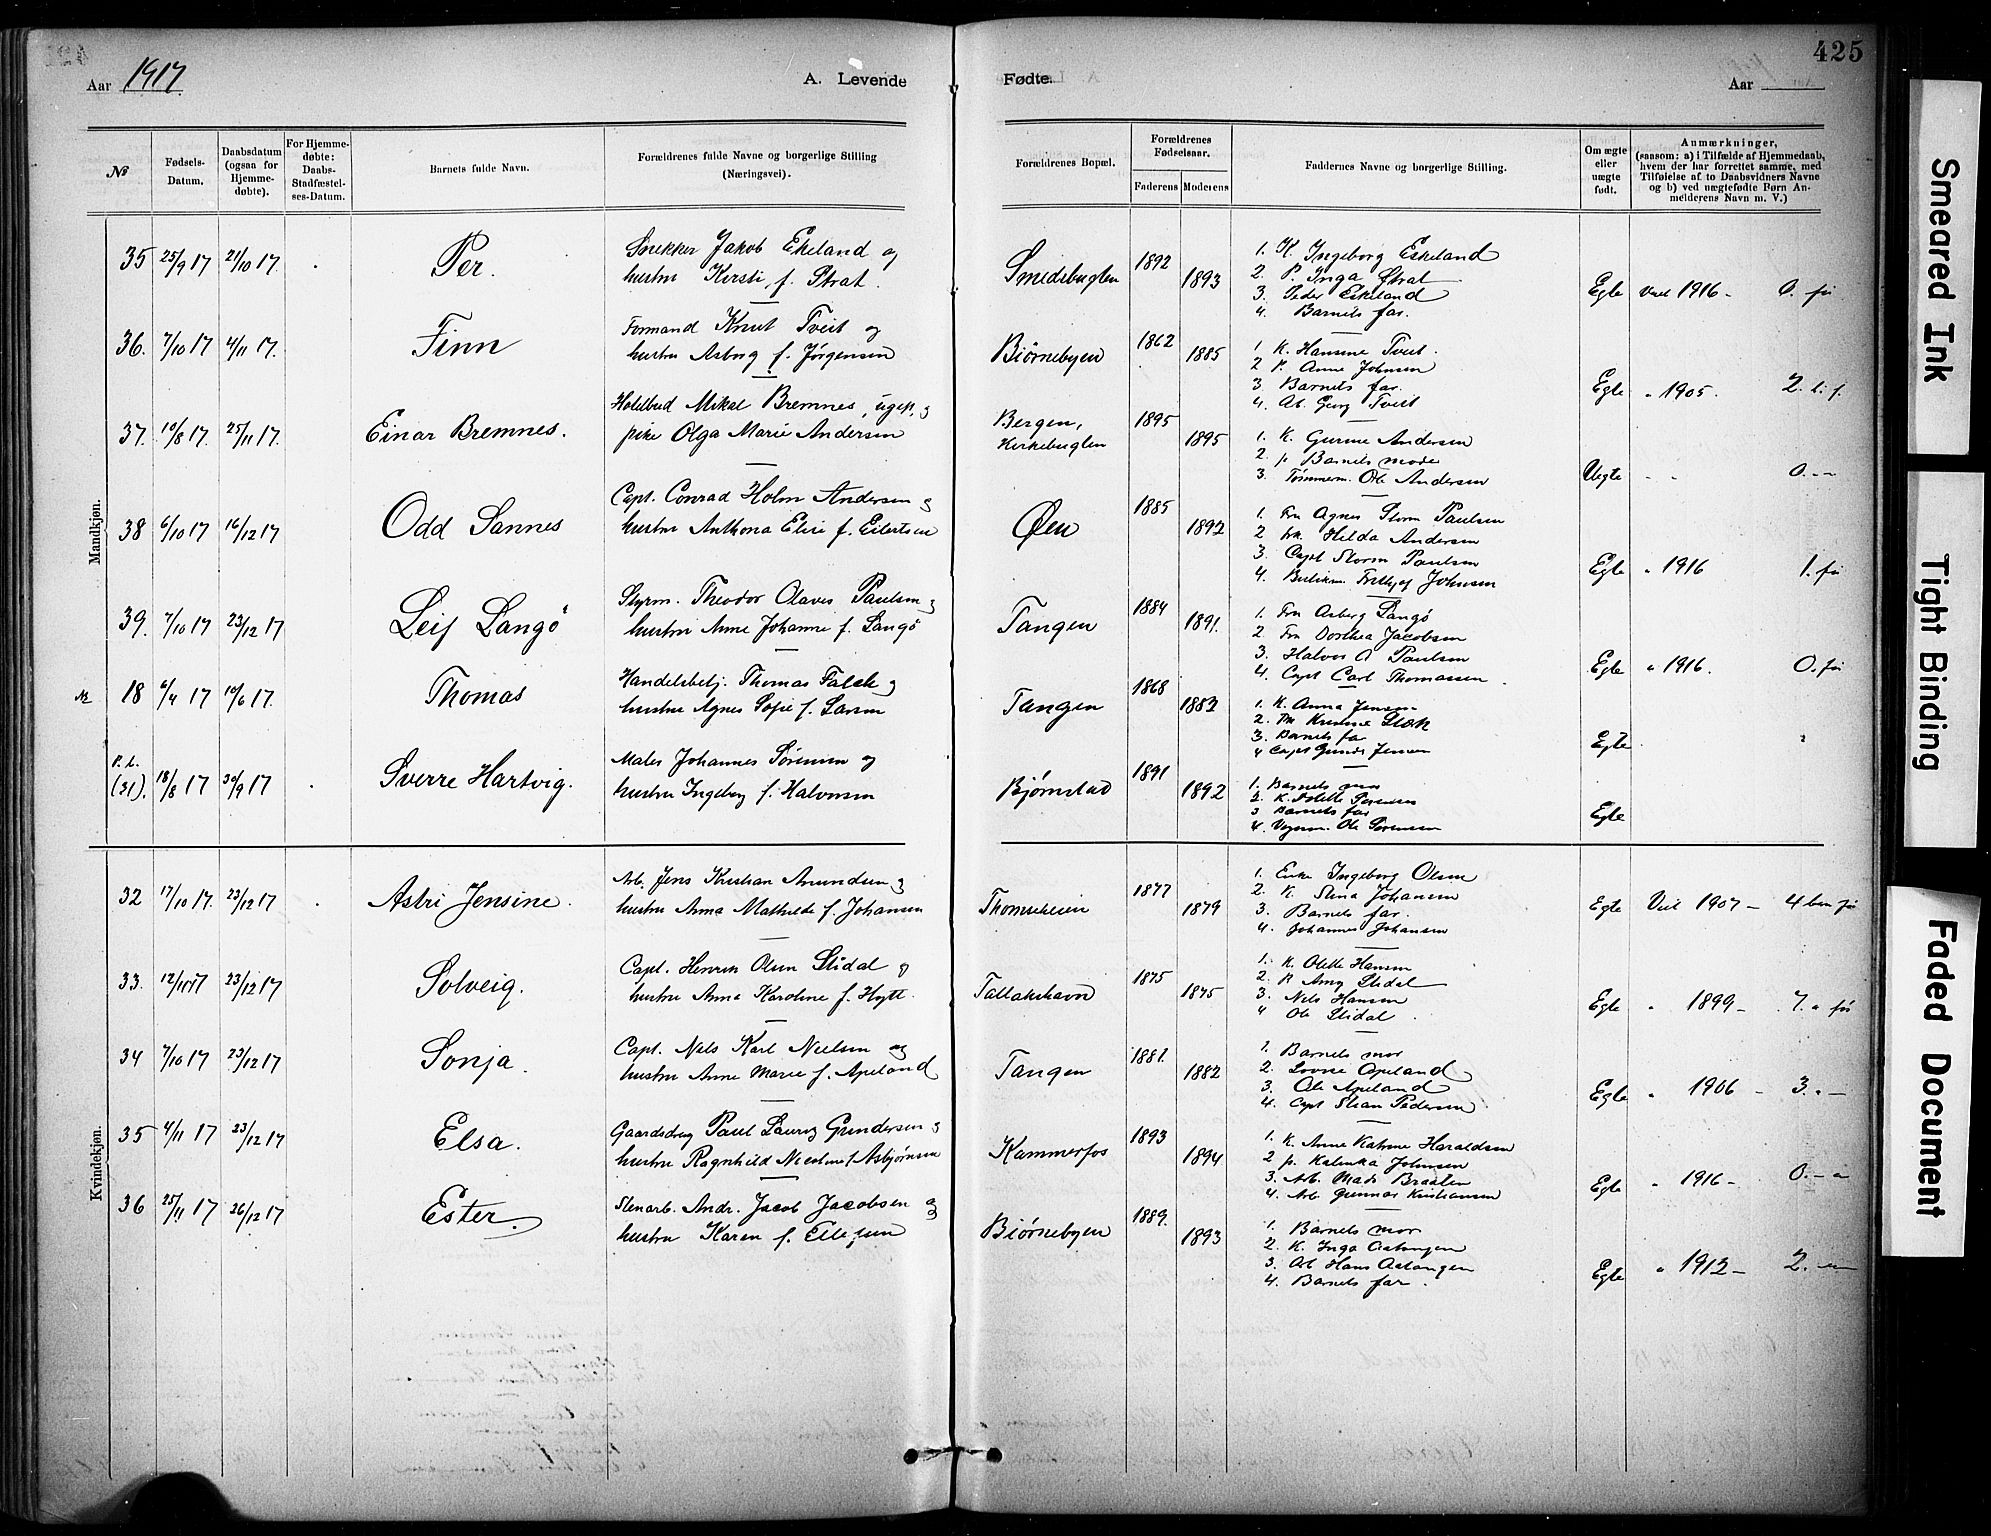 425
Aar 1917
A. Levende Fødte.
Aar
№
Fødsels-Datum.
Daabsdatum (ogsaa for Hjemmedøbte).
For Hjemmedøbte: Daabs-Stadfæstelses-Datum.
Barnets fulde Navn.
Forældrenes fulde Navne og borgerlige Stilling (Næringsvei).
Forældrenes Bopæl.
Forældrenes Fødselsaar.
Faderens Moderens
Faddernes Navne og borgerlige Stilling.
Om ægte eller uægte født.
Anmærkninger,
(saasom: a) i Tilfælde af Hjemmedaab, hvem der har forrettet samme, med Tilføielse af to Daabsvidners Navne og b) ved uægtefødte Børn Anmelderens Navn m. V.)
Mandkjøn.
35 25/9 17 21/10 17. Per.
Snekker Jakob Ekeland og
hustru Kirsti, f. Strat.
Smedsbuglen 1892 1893
1. K. Ingeborg Eskeland
2. P. Inga Strat
3. Peder Eskeland
4. Barnets far.
Egte Viet 1916 - 0. fø
36. 7/10 17 4/11 17. Finn
Formand Knut Tveit og
hustru Asborg f. Jørgensen
Biørnebyen 1862 1885
1. K. Hansine Tveit.
2 P. Anne Johnsen
3. Barnets far.
4. Ab. Georg Tveit
Egte " 1905. 2. l. f.
37. 10/8 17. 25/11 17. Einar Bremnes.
Hotelbud Mikal Bremnes, ugift, og
pike Olga Marie Andersen
Bergen,
Kirkebuglen 1895 1895
1. K. Gurine Andersen
2. p Barnets moder
3. Tømmerm. Ole Andersen
Uegte - - 0. - -
38 6/10 17 16/12 17 Odd Sannes
Capt. Conrad Holm Andersen og
hustru Anthona Elise f. Eilertsen
Øen 1885 1892
1. Fru Agnes Storm Paulsen
2 frk. Hilda Andersen
3. Capt Storm Paulsen
4. Fritjof Johnsen
Egte " 1916 1. fø
39. 7/10 17 23/12 17 Leif Langö
Styrm. Theodor Olaves Paulsen og
hustru Anne Johanne f. Langö
Tangen 1884 1891.
1. Fru Asberg Langö
2. Fru Dorthea Jacobsen
3. Halvor A Paulsen
4. Capt Carl Thomassen.
Egte " 1916. 0. fø
18 6/4 17 10/6 17. Thomas
Handelsbetj. Thomas Falck og
hustru Agnes Sofie f. Larsen
Tangen 1868 1883
1. K. Anna Jensen
3. Barnets far
4 Capt Gunder Jensen
Egte.
P. t.
(31). 18/8 17 30/9 17 Sverre Hartvig.
Maler Johannes Sørensen og
hustru Ingeborg f. Halvorsen
Bjørnstad 1891 1892
1. Barnets mor
2. K. Odette Sørensen
3 Barnets far
4. Vognm. Ole Sørensen
Egte
Kvindekjøn.
32 17/10 17. 23/12 17 Astri Jensine.
Arb. Jens Kristian Amundsen og
hustru Anna Mathilde f. Johansen
Thomseheien 1877 1879
1. Enke Ingeborg Olsen
2. K. Stina Johansen
3. Barnets far.
4. Johannes Johansen
Egte Viet 1907 - 4 børn fø
33. 12/11 17 23/12 17 Solveig.
Capt. Henrik Olsen Slidal og
hustru Anna Karoline f. Hytt.
Tallakshavn 1875 1875
1. K. Olette Hansen
2. P Amy Slidal
3. Nils Hansen
4 Ole Slidal.
Egte " 1899 - 7. " fø
34 7/10 17 23/12 17 Sonja.
Capt. Nils Karl Nielsen og
hustru Anne Marie f. Apeland
Tangen 1881. 1882
1. Barnets mor
2. Lovise Apeland
3. Ole Apeland
4. Capt Stian Pedersen
Egte " 1906 - 3. " -
35 4/11 17 23/12 17 Elsa.
Gaardsdreng Paul Lauritz Gundersen og
hustru Ragnhild Nicoline f Asbjørnsen
Kammerfos 1893 1894
1. K. Anne Katrine Haraldsen
2 p. Kalinka Johnsen
3. Arb. Mads Braaten
4. Arb Gunnar Kristiansen
Egte " 1916 - 0. - "
36 25/11 17 26/12 17 Ester.
Stenarb. Andr. Jacob Jacobsen og
hustru Karen f. Ellefsen
Biørnebyen 1889. 1893
1. Barnets mor
2. K. Inga Aatangen
3. Arb Hans Aatangen
4. Barnets far.
Egte " 1912 - 2. -
Smeared Ink
Tight Binding
Faded Document